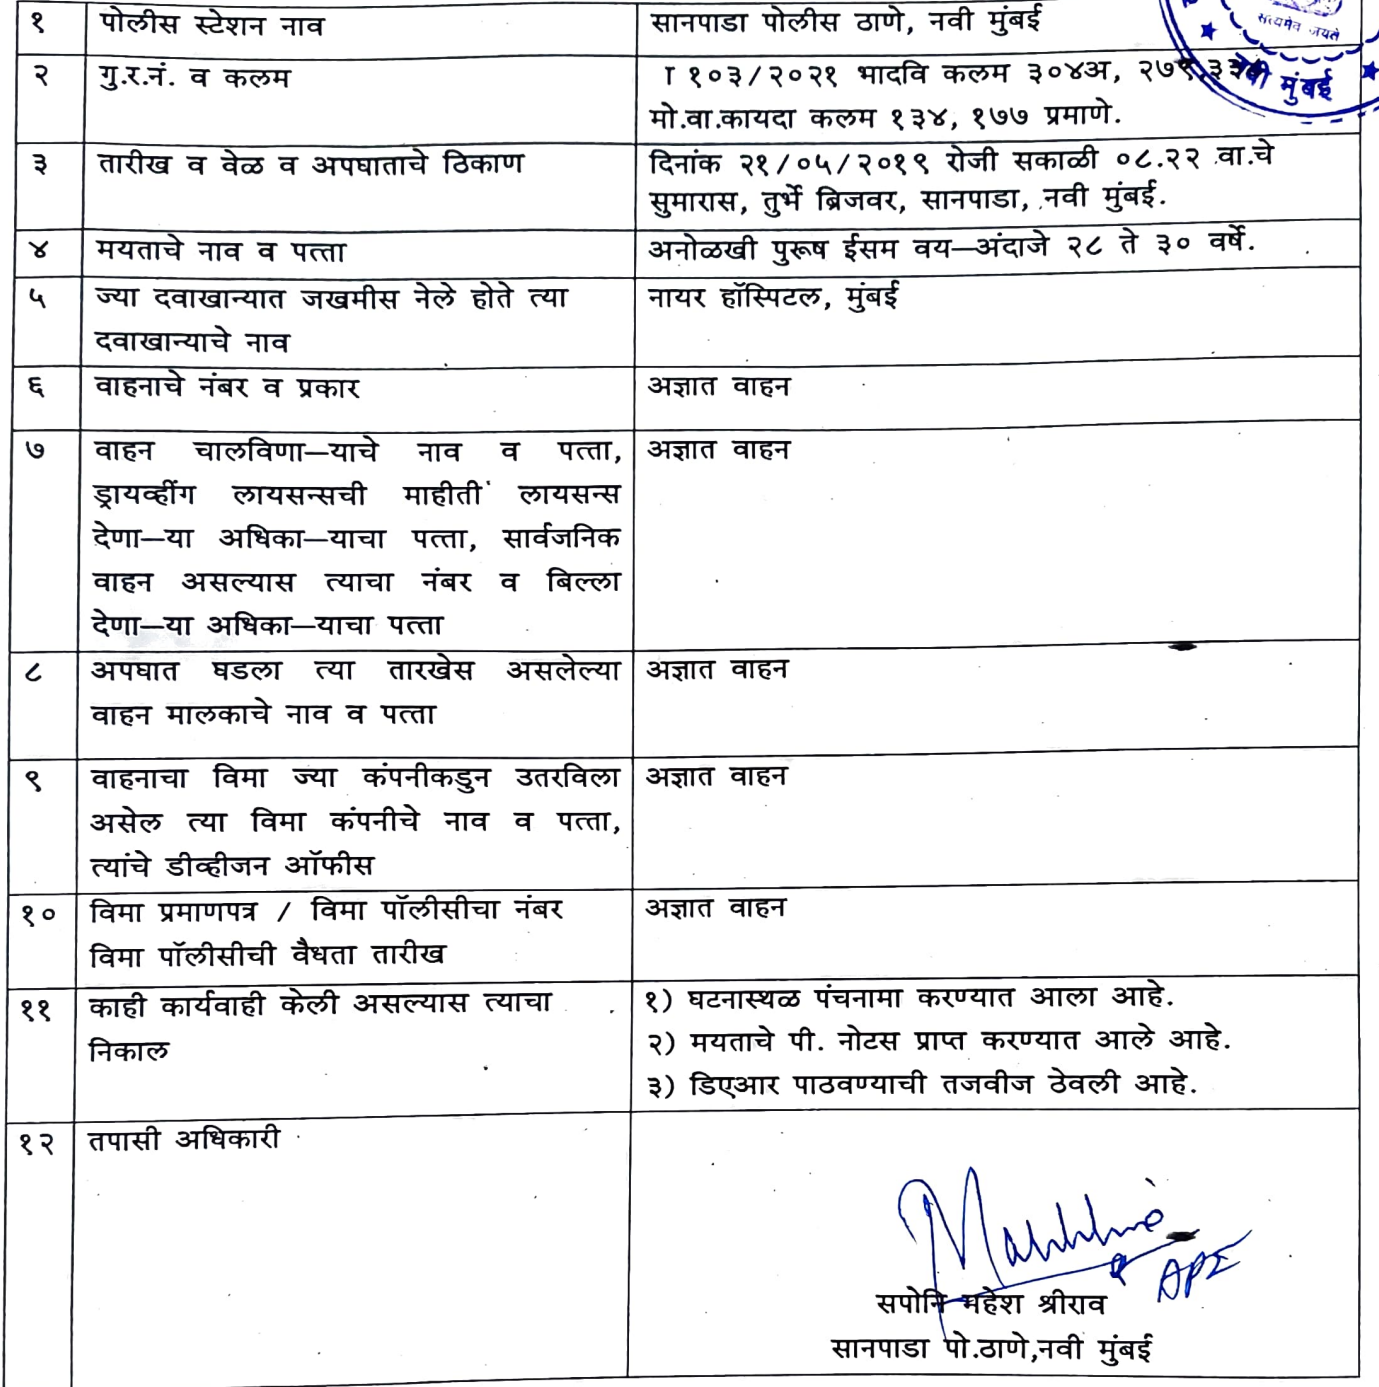 १ पोलीस स्टेशन नाव सानपाडा पोलीस ठाणे, नवी मुंबई
सत्यमेव जयते
नवी मुंबई
२ गु.र.नं. व कलम I १०३/२०२१ भादवि कलम ३०४अ, २७९,
मो.वा.कायदा कलम १३४, १७७ प्रमाणे.
३ तारीख व वेळ व अपघाताचे ठिकाण दिनांक २१/०५/२०१९ रोजी सकाळी ०८.२२ वा.चे
सुमारास, तुर्भे ब्रिजवर, सानपाडा, नवी मुंबई.
४ मयताचे नाव व पत्ता अनोळखी पुरूष ईसम वय—अंदाजे २८ ते ३० वर्षे.
५ ज्या दवाखान्यात जखमीस नेले होते त्या नायर हॉस्पिटल, मुंबई
दवाखान्याचे नाव
६ वाहनाचे नंबर व प्रकार अज्ञात वाहन
७ वाहन चालविणा—याचे नाव व पत्ता, अज्ञात वाहन
ड्रायव्हींग लायसन्सची माहीती लायसन्स
देणा—या अधिका—याचा पत्ता, सार्वजनिक
वाहन असल्यास त्याचा नंबर व बिल्ला
देणा—या अधिका—याचा पत्ता
८ अपघात घडला त्या तारखेस असलेल्या अज्ञात वाहन
वाहन मालकाचे नाव व पत्ता
९ वाहनाचा विमा ज्या कंपनीकडुन उतरविला अज्ञात वाहन
असेल त्या विमा कंपनीचे नाव व पत्ता,
त्यांचे डीव्हीजन ऑफीस
१० विमा प्रमाणपत्र / विमा पॉलीसीचा नंबर अज्ञात वाहन
विमा पॉलीसीची वैधता तारीख
११ काही कार्यवाही केली असल्यास त्याचा १) घटनास्थळ पंचनामा करण्यात आला आहे.
निकाल २) मयताचे पी. नोटस प्राप्त करण्यात आले आहे.
३) डिएआर पाठवण्याची तजवीज ठेवली आहे.
१२ तपासी अधिकारी
API
सपोनि महेश श्रीराव
सानपाडा पो.ठाणे,नवी मुंबई